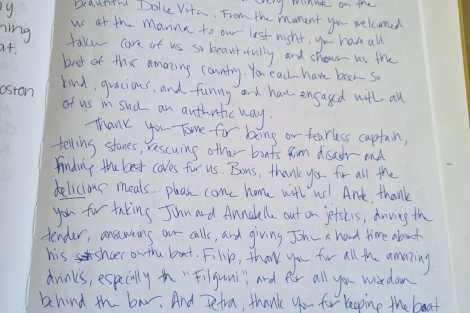 every minute on the
beautiful Dolce Vita. From the moment you welcomed
us at the marina to our last night, you have all
taken care of us so beautifully and shown us the
best of this amazing country. You each have been so
kind, gracious, and funny and have engaged with all
of us in such an authentic way.
Thank you Tome for being our fearless captain,
telling stories, rescuing other boats from disaster and
finding the best coves for us. Boris, thank you for all the
delicious meals - please come home with us! Ante, thank
you for taking John and Annabelle out on jetskis, driving the
tender, answering our calls, and giving John a hard time about
his shoes on the boat. Filip, thank you for all the amazing
drinks, especially the "Filgroni", and for all your wisdom
behind the bar. And Petra, thank you for keeping the boat
y
ning
at.
oston